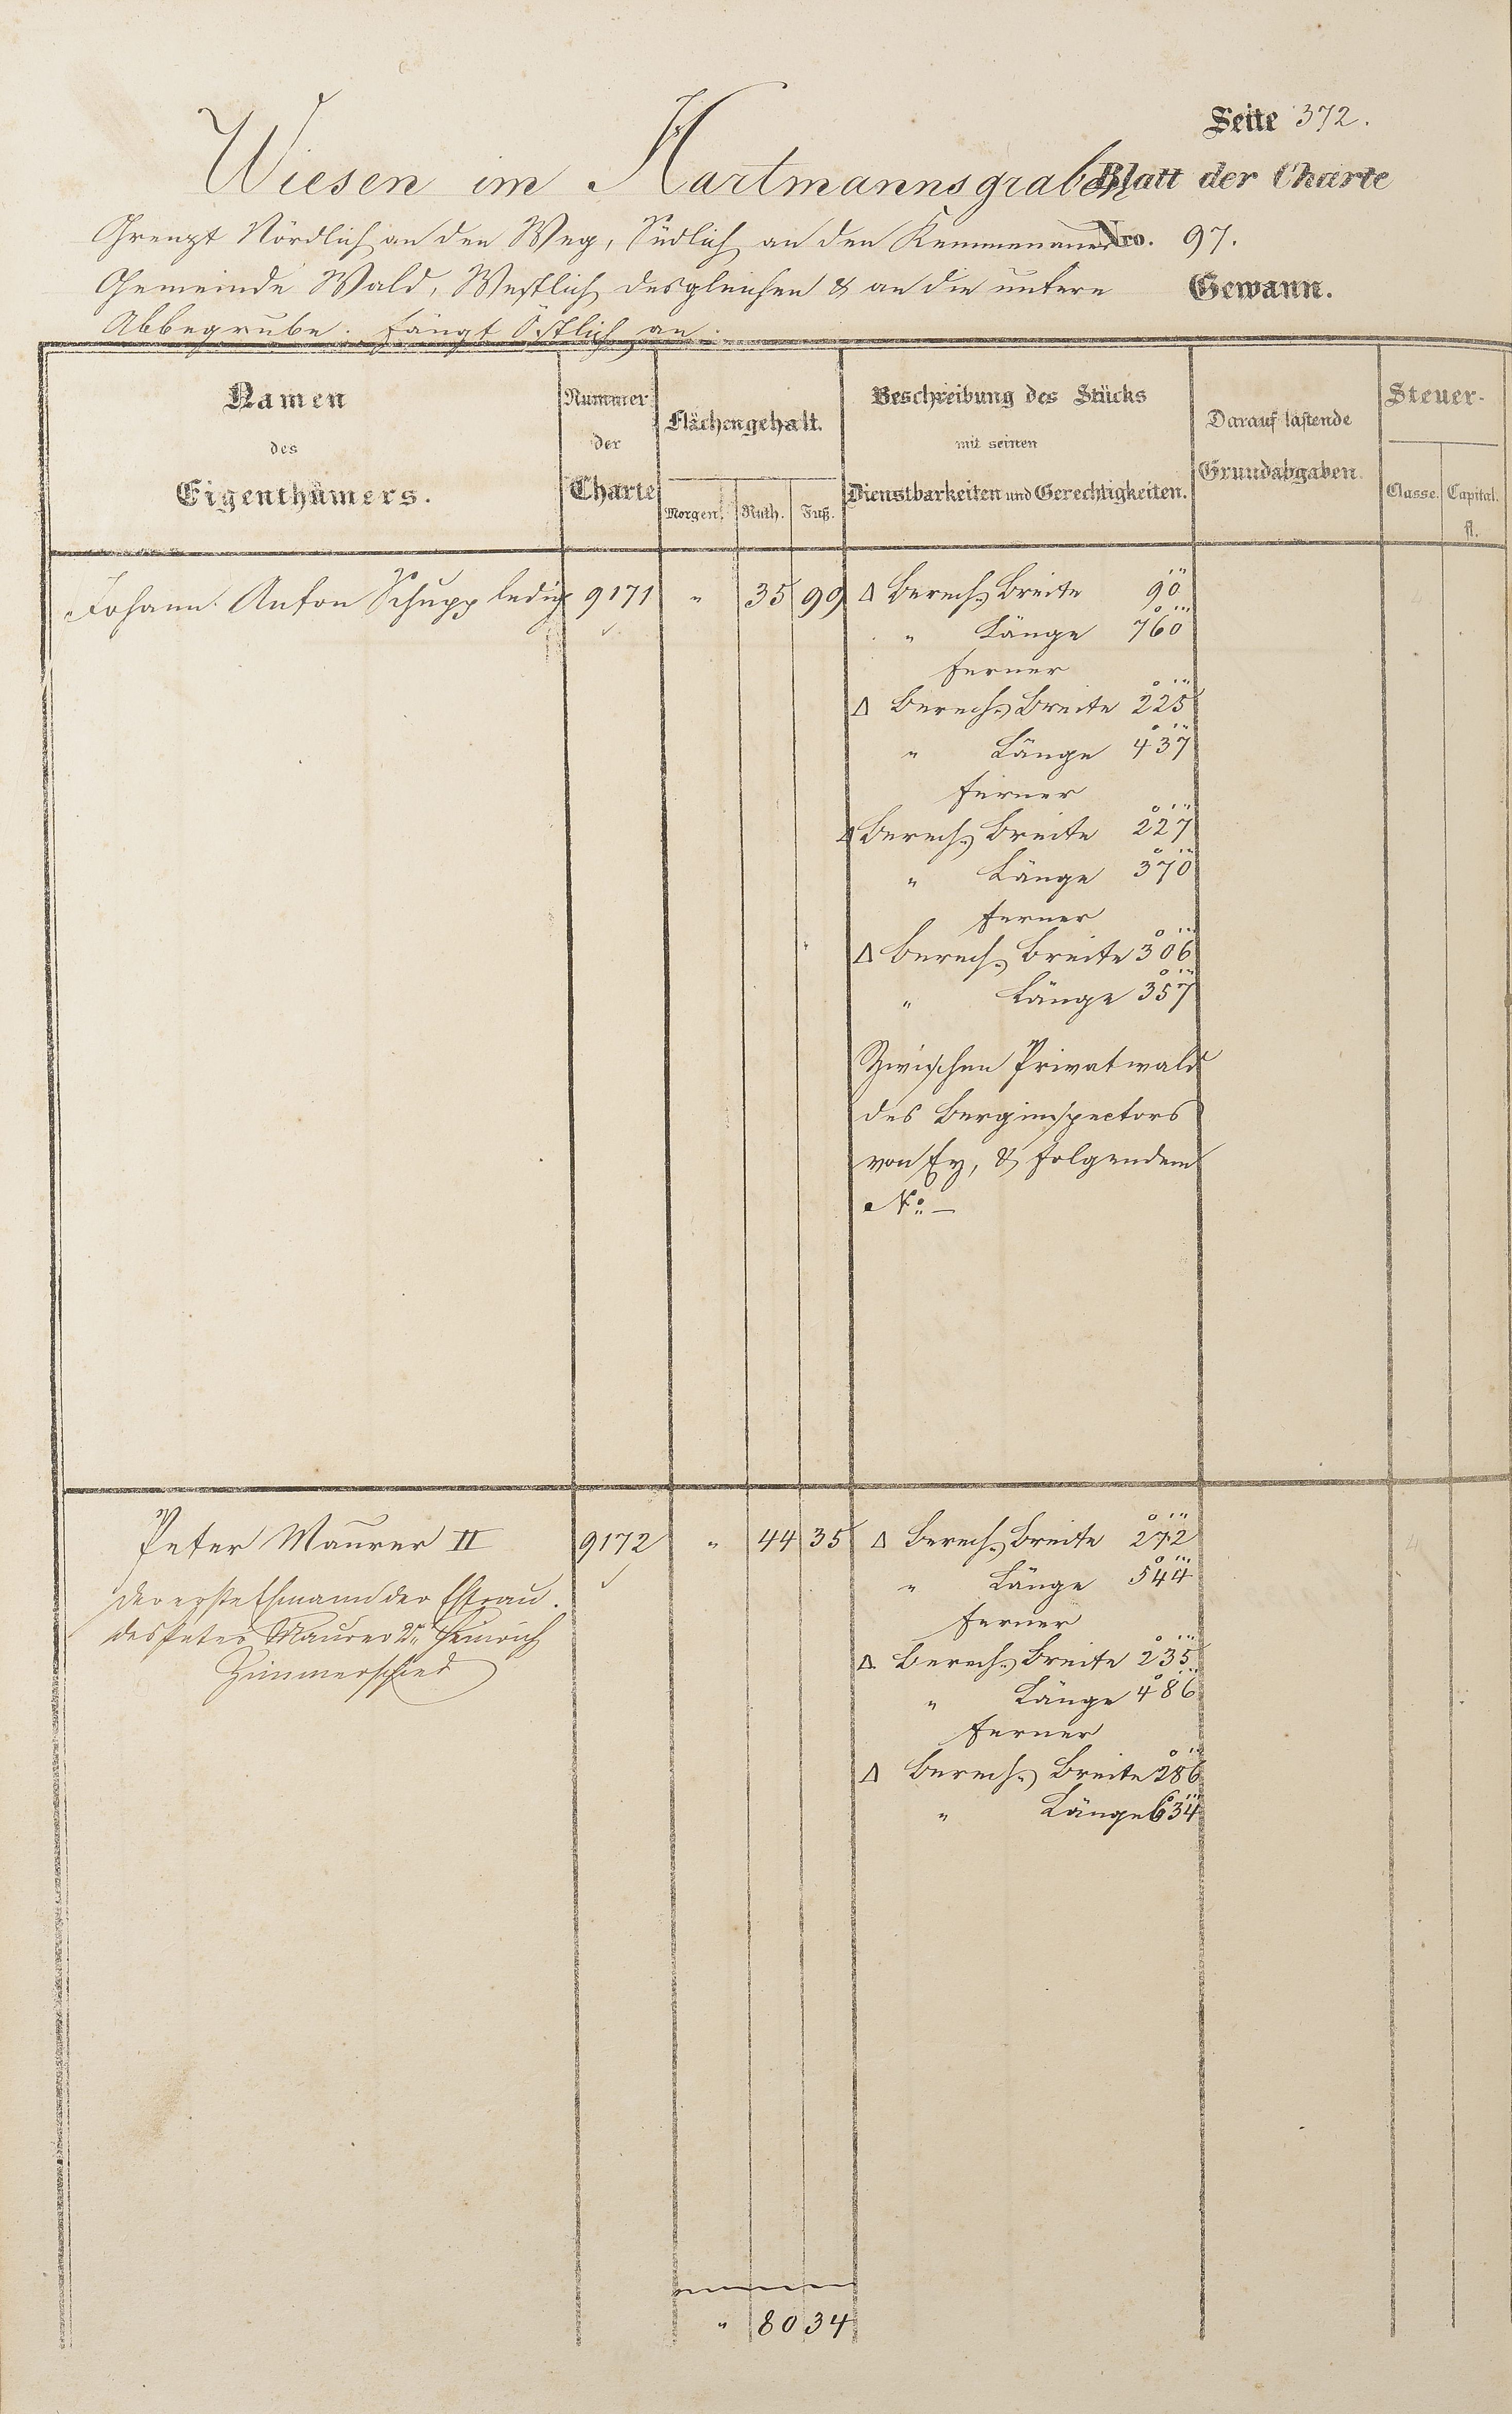 Seite 372.
Wiesen im Hartmannsgraben
Blatt der Charte
Grenzt Nördlich an den Weg, Südlich an den Kemmenauer
Nro. 97.
Gemeinde Wald, Westlich desgleichen & an die untere
Gewann.
Abbegrube. Fängt Östlich an.
Namen
des
Eigenthümers.
Nummer
der
Charte
Flächengehalt.
Morgen. Ruth. Fuß.
Beschreibung des Stücks
mit seinen
Dienstbarkeiten und Gerechtigkeiten.
Darauf lastende
Grundabgaben.
Steuer-
Classe. Capital.
fl.
Johann Anton Schupp ledig 9171 " 35 99 Δ Berech. Breite 90
" Länge 760
ferner
Δ Berech. Breite 225
" Länge 437
ferner
Δ Berech. Breite 227
" Länge 370
ferner
Δ Berech. Breite 306
" Länge 357
Zwischen Privatwald
des Berginspectors
von Ey, & folgendem
No. —
Peter Maurer II 9172 " 44 35 Δ Berech. Breite 272 4
" Länge 544
der erste Ehmann der Ehfrau
ferner
des Peter Maurer 2r Heinrich
Δ Berech. Breite 235
Zimmerschied
" Länge 486
ferner
Δ Berech. Breite 286
" Länge 634
" 80 34